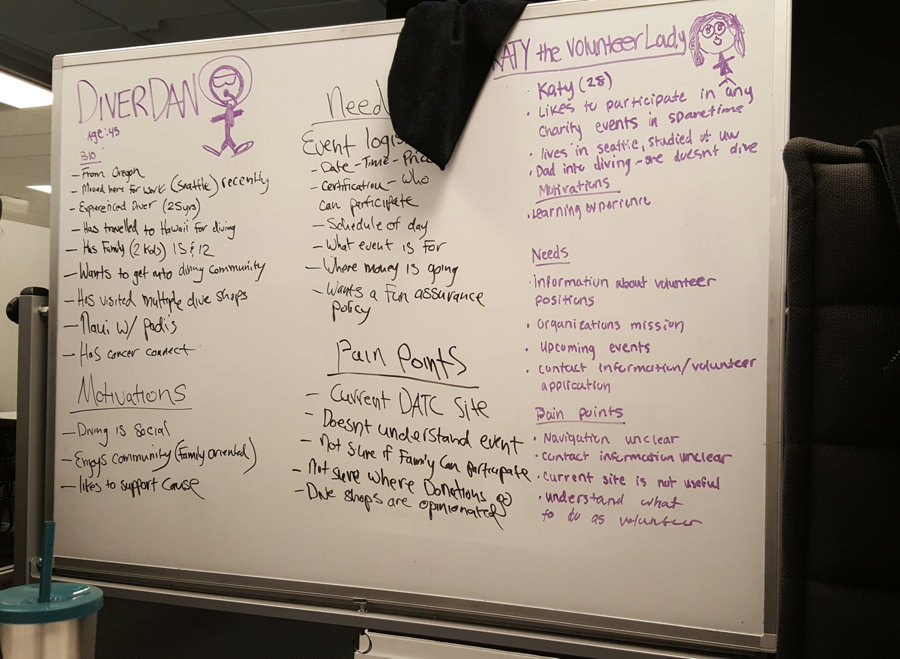 DIVERDAN
age: 43
BIO
- From Oregon
- Moved here for work (Seattle) recently
- Experienced Diver (25yrs)
- Has travelled to Hawaii for diving
- Has Family (2 kids) 15 & 12
- Wants to get into diving community
- Has visited multiple dive shops
- Naui w/ padis
- Has cancer connect
Motivations
- Diving is Social
- Enjoys community (family oriented)
- likes to support Cause
Need
Event logis
- Date - Time - Price
- certification - who
can participate
- Schedule of day
- What event is for
- Where money is going
- Wants a Fun assurance
policy
Pain Points
- Current DATC Site
- Doesnt understand event
- Not sure if Family Can participate
- Not sure where Donations go
- Dive shops are opinionated
KATY the Volunteer Lady
· Katy (28)
· Likes to participate in any
charity events in sparetime
· lives in seattle, studied at UW
· Dad into diving - she doesnt dive
Motivations
· Learning experience
Needs
· Information about volunteer
positions
· organizations mission
· upcoming events
· contact information/volunteer
application
Pain points
· Navigation unclear
· contact information unclear
· current site is not useful
· understand what
to do as volunteer